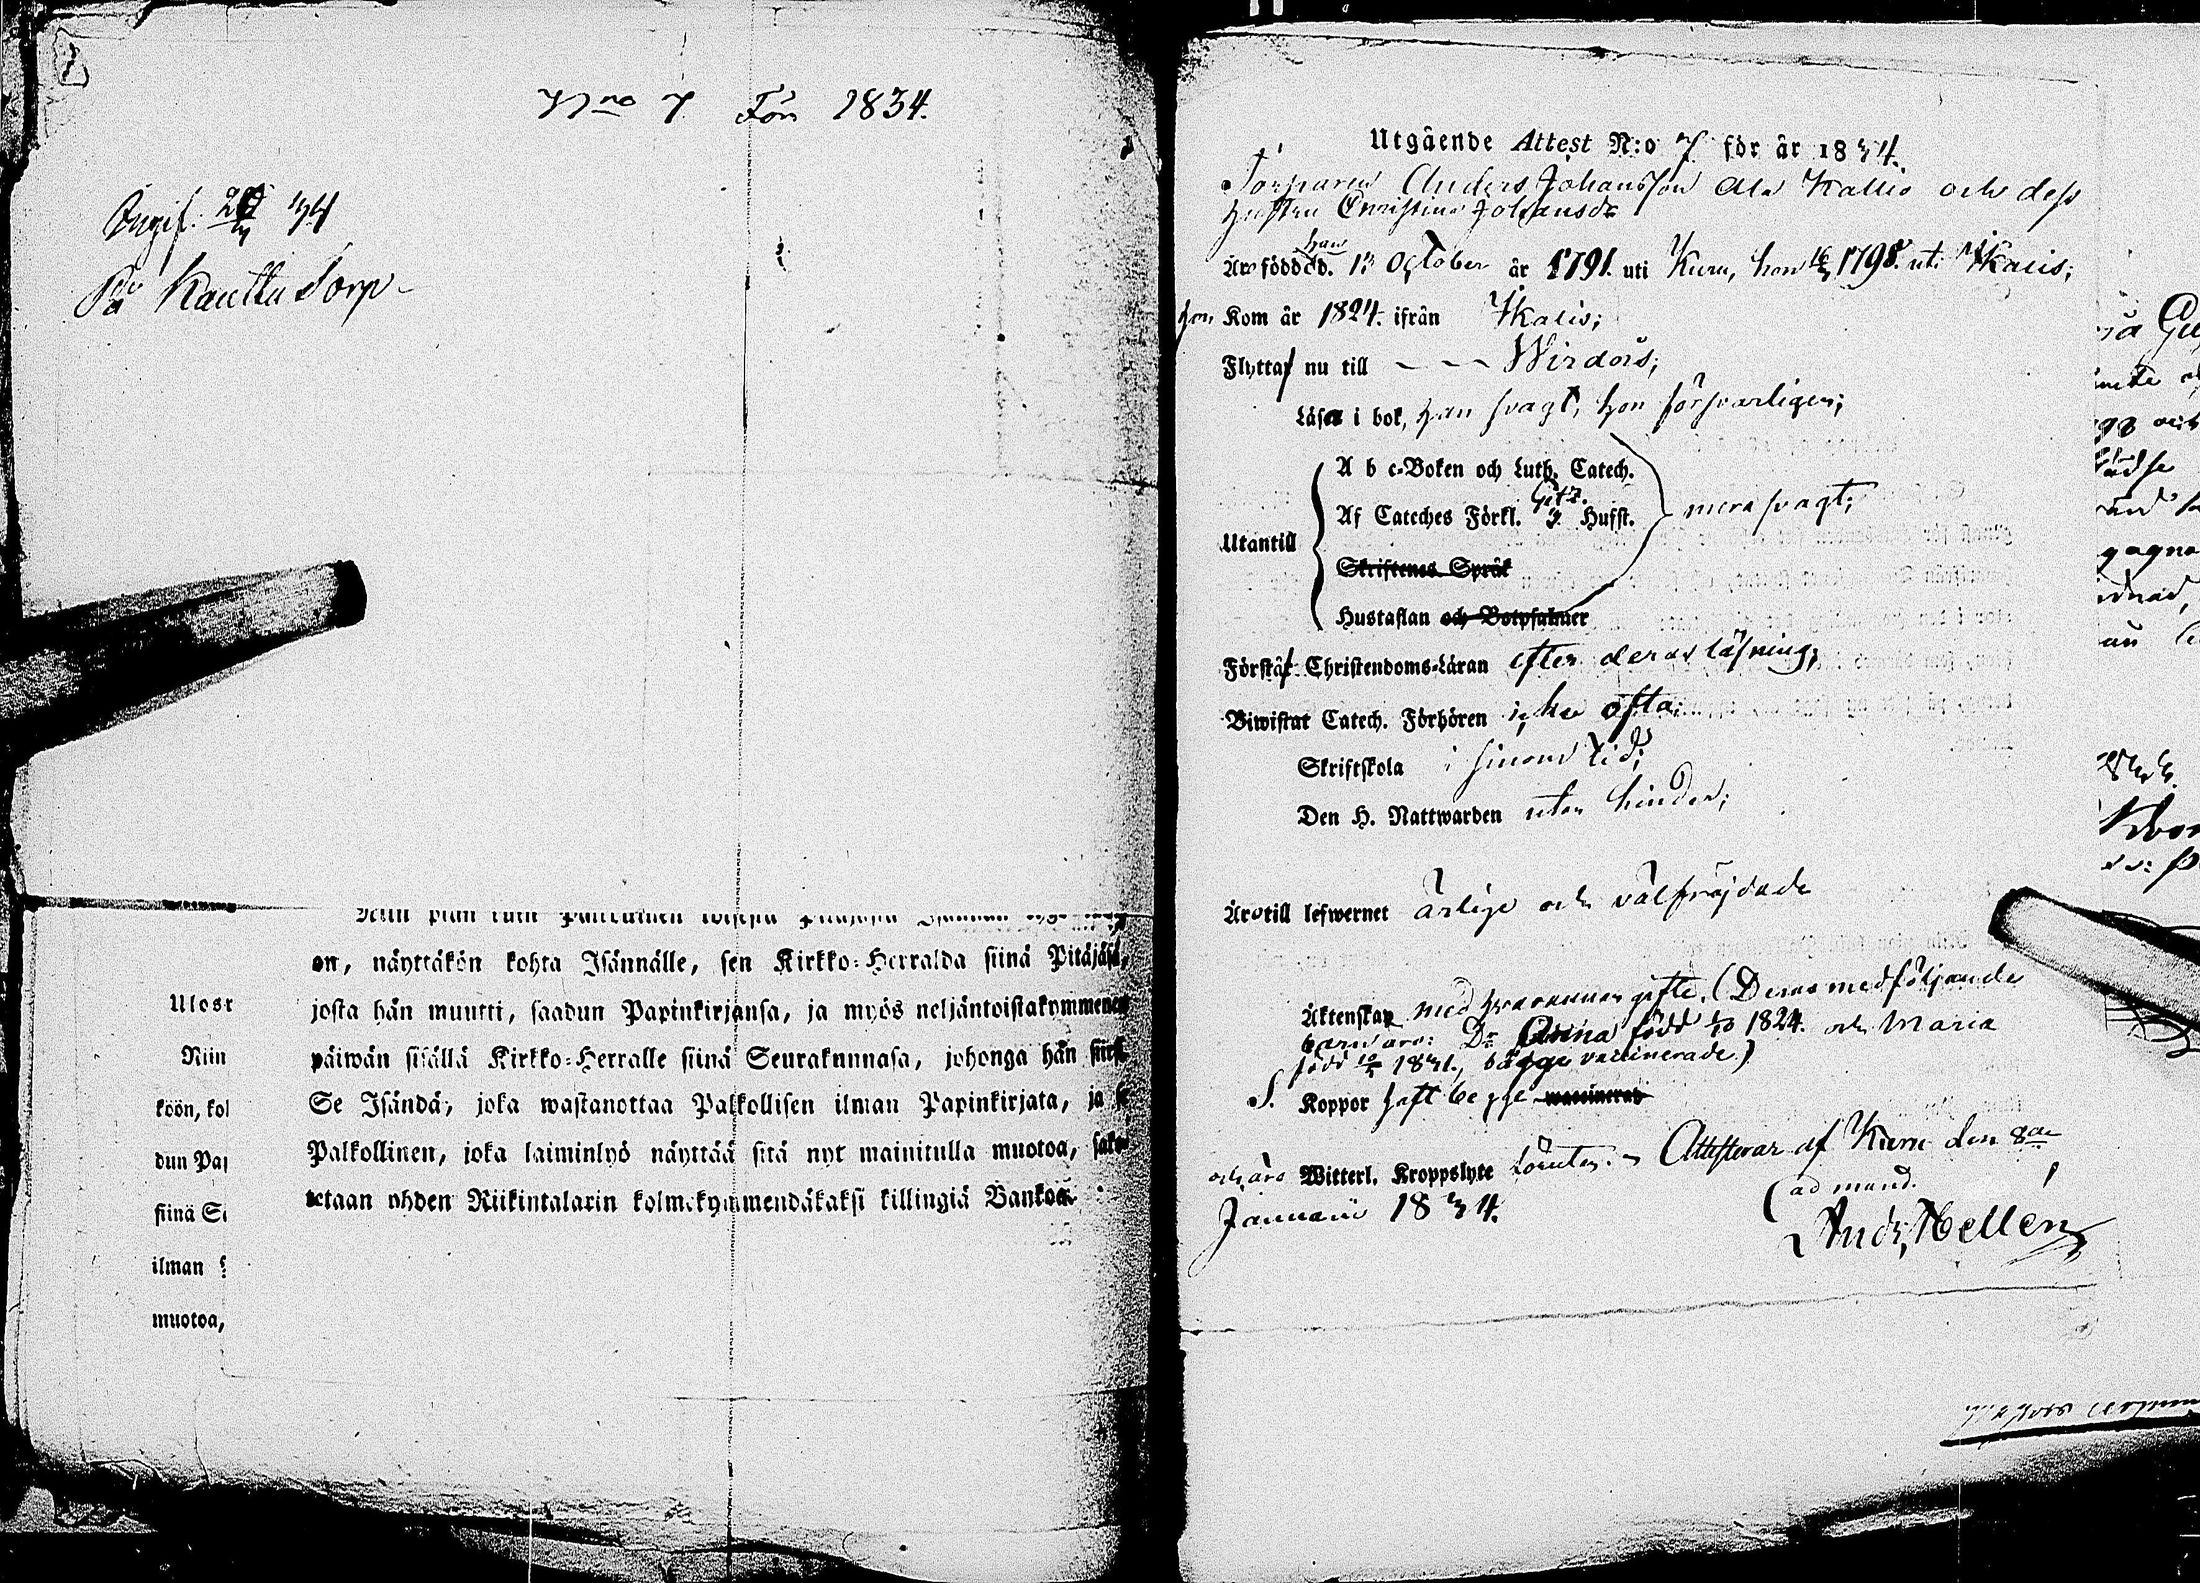 Nro 7 För 1834.
Ingif.
På Kautta Torp
on, näyttäkön kohta Isännälle, sen Kirkko-Herralda siinä Pitäjäsä,
josta hän muutti, saadun Papinkirjansa, ja myös neljäntoistakymmenen
päiwän sisällä Kirkko-Herralle siinä Seurakunnasa, johonga hän
Se Isändä, joka wastanottaa Palkollisen ilman Papinkirjata, ja
Palkollinen, joka laiminlyö näyttää sitä nyt mainitulla muotoa,
tetaan yhden Riikintalarin kolmekymmendäkaksi killingiä Bankoa.
Ulost
Niin
köön, kol
dun Pap
siinä Se
ilman
muotoa,
Utgående Attest N:o 7 för år 1834.
Torparen Anders Johansson Ala Kallio och dess
hustru Christina Johansdr
han
Äro födde d. 13 October år 1791. uti Kuru, hon 1798. uti Ikalis;
hon Kom år 1824. ifrån Ikalis;
Flytta nu till - - - Wirdois;
Läsa i bok, han svagt, hon försvarligen;
A b c-Boken och Luth. Catech.
Af Cateches Förkl. 3. Hufst.
mera svagt;
Utantill
Skriftenes Språk
Hustaflan och Botpsalmer
Förstå Christendoms-Läran efter deras läsning;
Biwistat Catech. Förhören icke ofta;
Skriftskola i sinom tid;
Den H. Nattwarden utan hinder;
Äro till lefwernet ärlige och välfräjdade
Äktenskap med hvarannan gifte. (Deras medföljande
barn äro: Dr Anna född 1824. och Maria
född 1831., bägge vaccinerade)
S. Koppor haft begge waccinerad
och äro Witterl. Kroppslyte Attesterar af Kuru den 8de
Januarii 1834.
ad mand.
And. Hellén